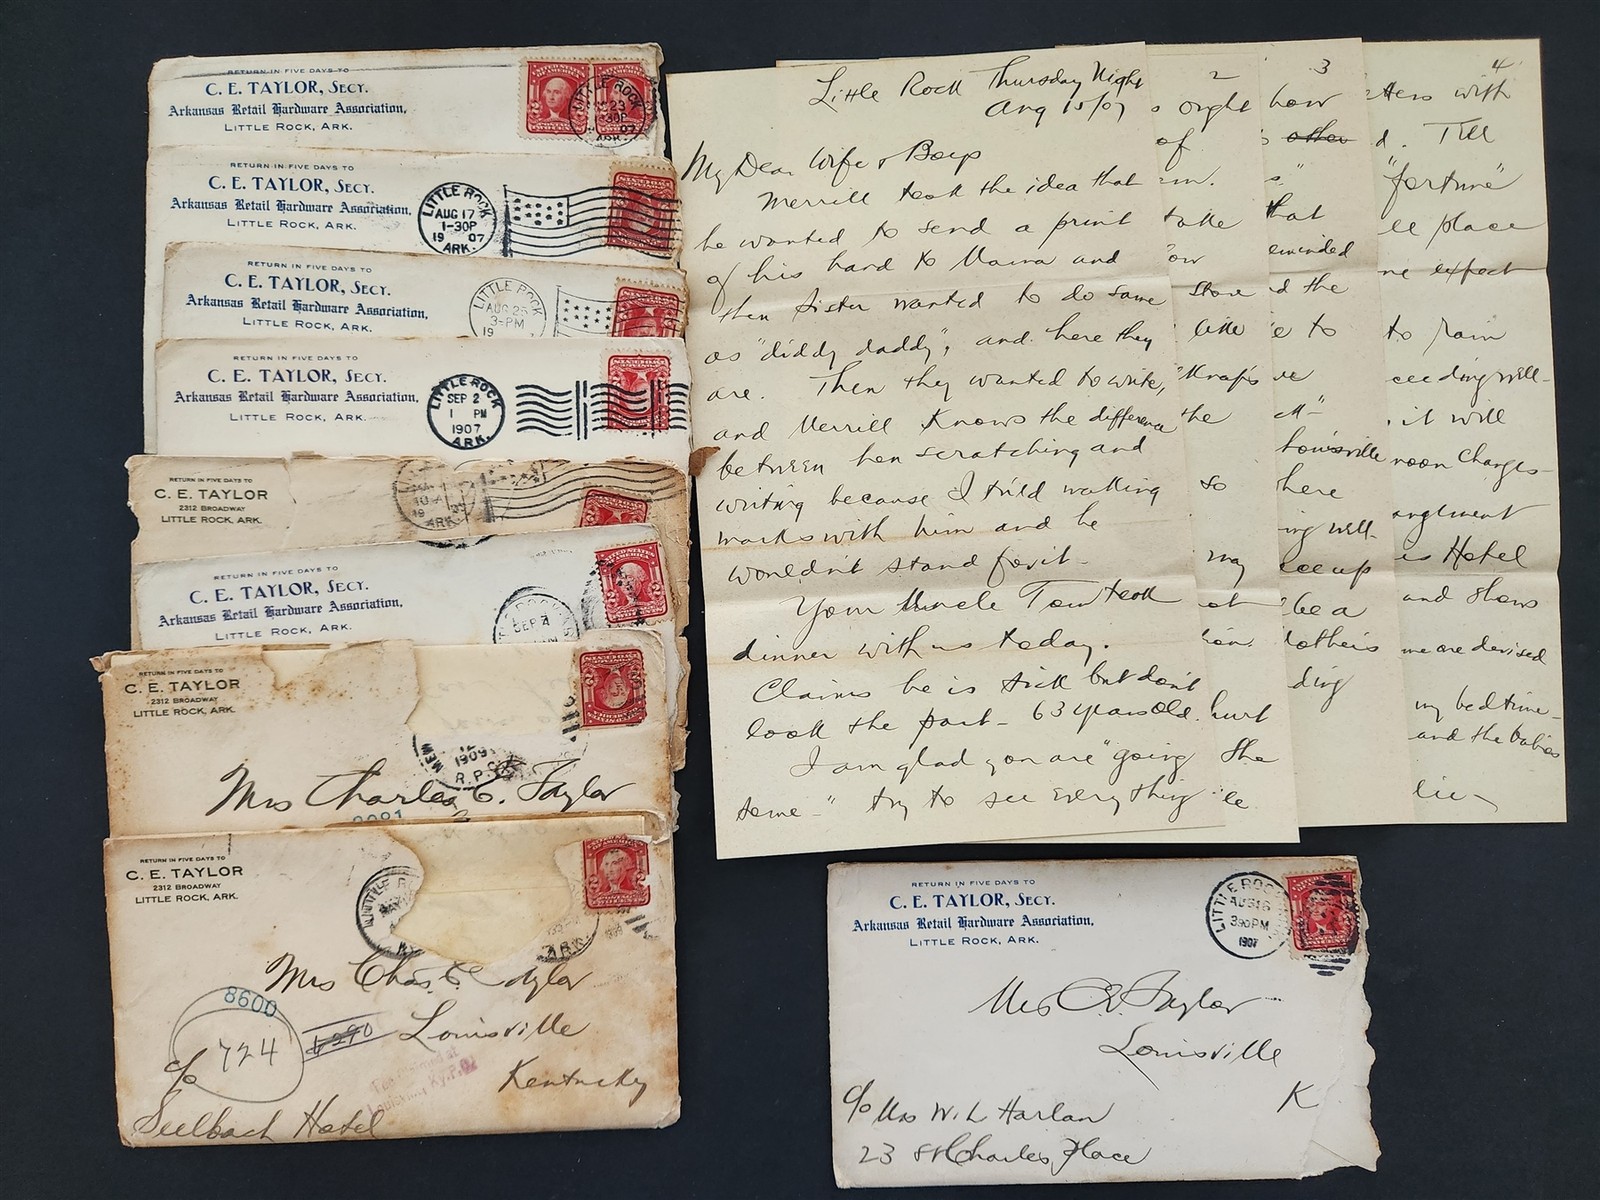 RETURN IN FIVE DAYS TO
C. E. TAYLOR, SECY.
Arkansas Retail Hardware Association,
LITTLE ROCK, ARK.
UNITED STATES
OF AMERICA
LITTLE ROCK
23
07
ARK.
RETURN IN FIVE DAYS TO
C. E. TAYLOR, SECY.
Arkansas Retail Hardware Association,
LITTLE ROCK, ARK.
LITTLE ROCK
AUG 17
1-30P
19 07
ARK.
RETURN IN FIVE DAYS TO
C. E. TAYLOR, SECY.
Arkansas Retail Hardware Association,
LITTLE ROCK, ARK.
LITTLE ROCK
AUG 25
3-PM
19
RETURN IN FIVE DAYS TO
C. E. TAYLOR, SECY.
Arkansas Retail Hardware Association,
LITTLE ROCK, ARK.
LITTLE ROCK
SEP 2
1 PM
1907
ARK.
RETURN IN FIVE DAYS TO
C. E. TAYLOR
2312 BROADWAY
LITTLE ROCK, ARK.
19
ARK.
RETURN IN FIVE DAYS TO
C. E. TAYLOR, SECY.
Arkansas Retail Hardware Association,
LITTLE ROCK, ARK.
SEP
UNITED STATES
OF AMERICA
RETURN IN FIVE DAYS TO
C. E. TAYLOR
2312 BROADWAY
LITTLE ROCK, ARK.
12
1909
R.P.O.
Mrs Charles E. Taylor
RETURN IN FIVE DAYS TO
C. E. TAYLOR
2312 BROADWAY
LITTLE ROCK, ARK.
LITTLE RO
ARK.
Mrs Chas. E Taylor
8600
724
Louisville
Kentucky
c/o
Seelbach Hotel
Little Rock Thursday Night
Aug 15/07
My Dear Wife & Boys
Merrill took the idea that
he wanted to send a print
of his hand to Mama and
then Sister wanted to do same
as "diddy daddy", and here they
are. Then they wanted to write,
and Merrill knows the difference
between hen scratching and
writing because I tried walking
marks with him and he
wouldn't stand for it-
Your Uncle Tom took
dinner with us today.
Claims he is sick but don't
look the part- 63 years old.
I am glad you are "going
some-" try to see everything
2
ought
of
take
store
like
the
so
may
hurt
She
3
how
other
that
reminded
d the
e to
ve
Louisville
here
ing well-
be a
Mother's
ding
4
with
d. Till
"fortune"
place
expect
to rain
ceeding well-
it will
noon Charges-
Hotel
and Shows
me are devised
my bedtime-
and the babies
RETURN IN FIVE DAYS TO
C. E. TAYLOR, SECY.
Arkansas Retail Hardware Association,
LITTLE ROCK, ARK.
LITTLE ROCK
AUG 16
3-30PM
1907
Mrs C E Taylor
Louisville
K
c/o Mrs W. L Harlan
23 St Charles Place